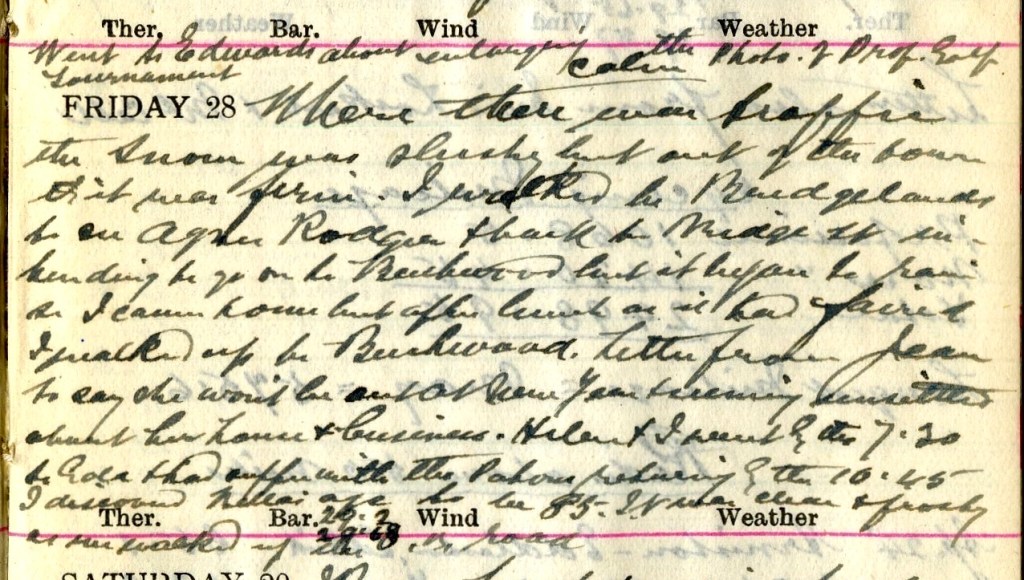 Ther. Bar. Wind Weather
Went to Edwards about enlarging the Photo. of Prof. Golf
Tournament calm
FRIDAY 28 Where there was traffic
the snow was slushy but out of the town
it was firm. I walked to Bridgelands
to see Agnes Rodger & back to Bridge St in-
tending to go on to Beechwood but it began to rain
so I came home but after lunch as it had faired
I walked up to Beechwood. Letter from Jean
to say she won't be out at New Year & seeming unsettled
about her house & business. Helen & I went by the 7.30
to Gala & had supper with the returning by the 10.45
I discovered age to be 85. It was clear & frosty
Ther. Bar. 29.2 Wind Weather
as we walked up the road
SATURDAY 29